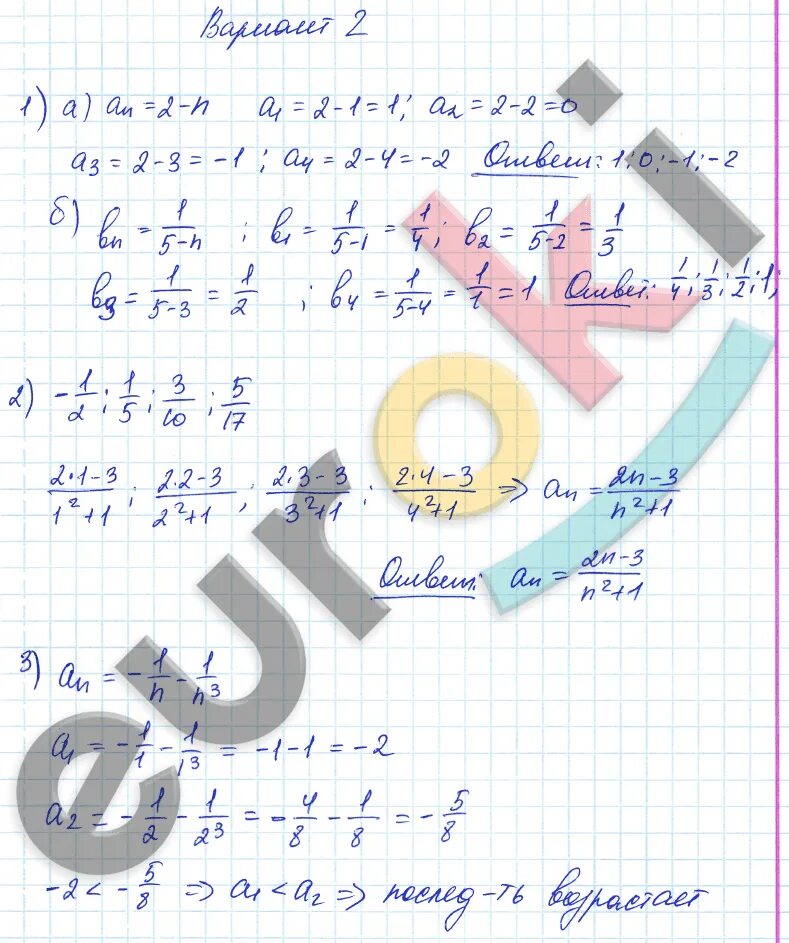 Вариант 2
1) а) aₙ = 2-n a₁ = 2-1 = 1; a₂ = 2-2 = 0
a₃ = 2-3 = -1; a₄ = 2-4 = -2 Ответ: 1; 0; -1; -2
б) bₙ = 1/(5-n); b₁ = 1/(5-1) = 1/4; b₂ = 1/(5-2) = 1/3
b₃ = 1/(5-3) = 1/2; b₄ = 1/(5-4) = 1/1 = 1 Ответ: 1/4; 1/3; 1/2; 1;
2) -1/2; 1/5; 3/10; 5/17
(2·1-3)/(1²+1); (2·2-3)/(2²+1); (2·3-3)/(3²+1); (2·4-3)/(4²+1) => aₙ = (2n-3)/(n²+1)
Ответ: aₙ = (2n-3)/(n²+1)
3) aₙ = -1/n - 1/n³
a₁ = -1/1 - 1/1³ = -1-1 = -2
a₂ = -1/2 - 1/2³ = -4/8 - 1/8 = -5/8
-2 < -5/8 => a₁ < a₂ => послед-ть возрастает
euroki